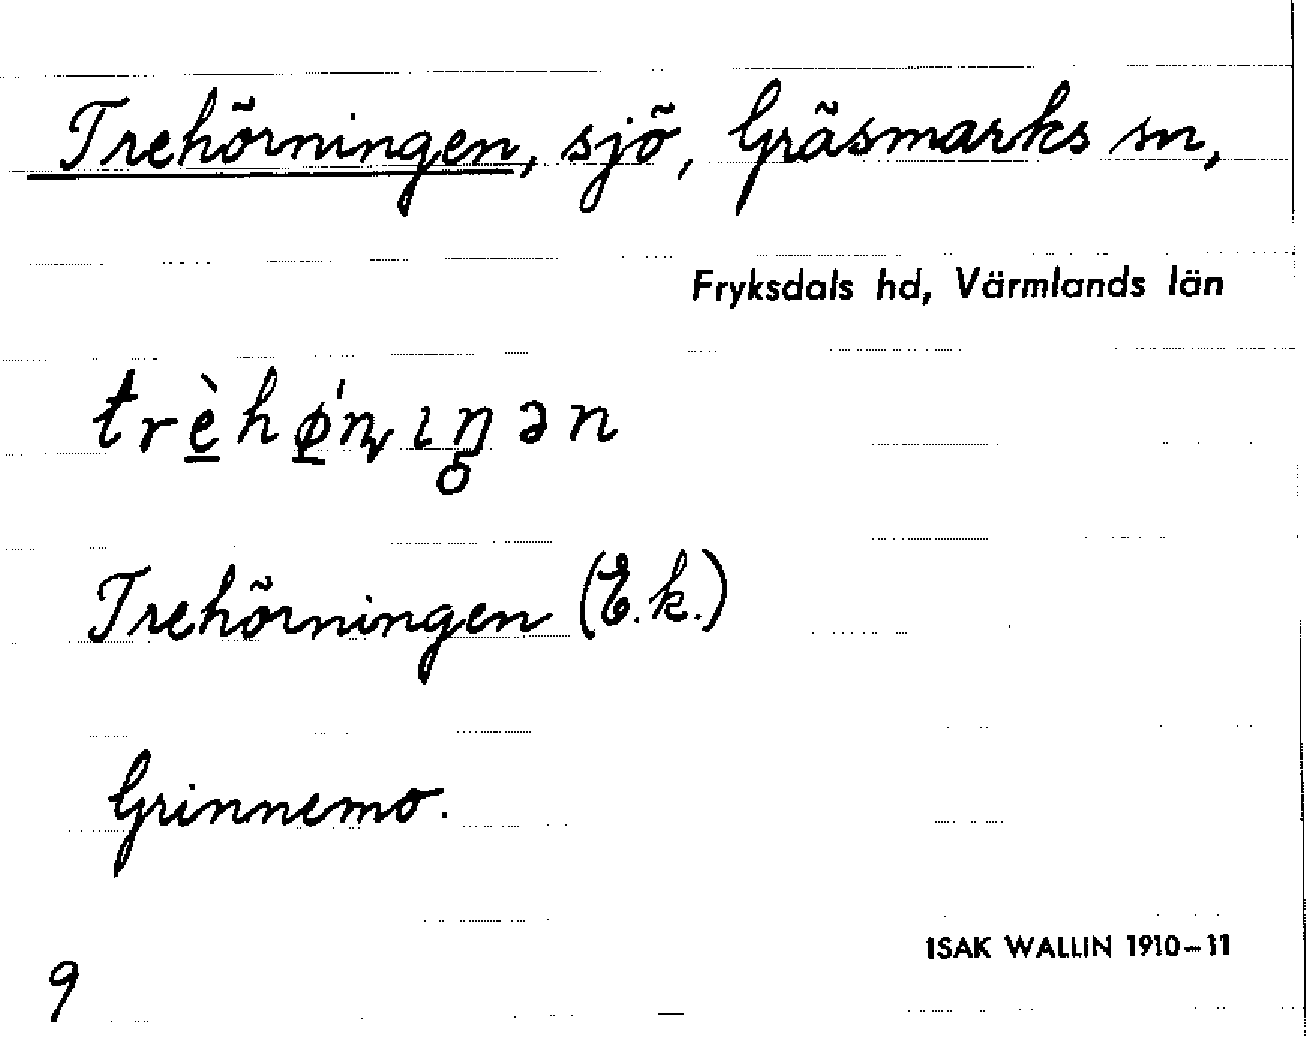 Trehörningen, sjö, Gräsmarks sn,
Fryksdals hd, Värmlands län
trèhǿɳɪŋən
Trehörningen (E.k.)
Grinnemo.
ISAK WALLIN 1910–11
9